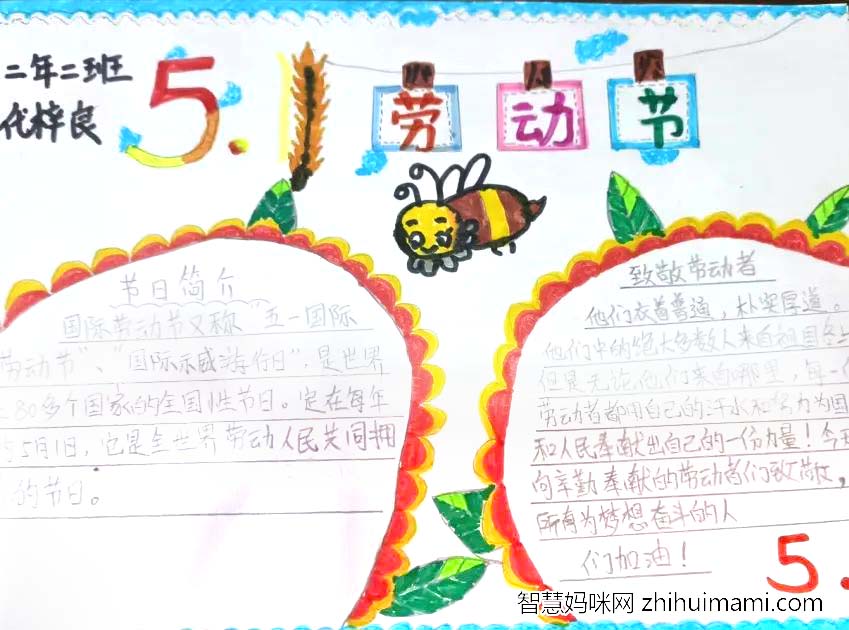 二年二班
代梓良
5.1
劳动节
节日简介
国际劳动节又称"五一国际
劳动节"、"国际示威游行日",是世界
上80多个国家的全国性节日。定在每年
5月1日,它是全世界劳动人民共同拥
的节日。
致敬劳动者
他们衣着普通,朴实厚道。
他们中的绝大多数人来自祖国各
但是无论他们来自哪里,每一
劳动者都用自己的汗水和努力为国
和人民奉献出自己的一份力量!今天
向辛勤奉献的劳动者们致敬,
所有为梦想奋斗的人
们加油!
5.
智慧妈咪网 zhihuimami.com